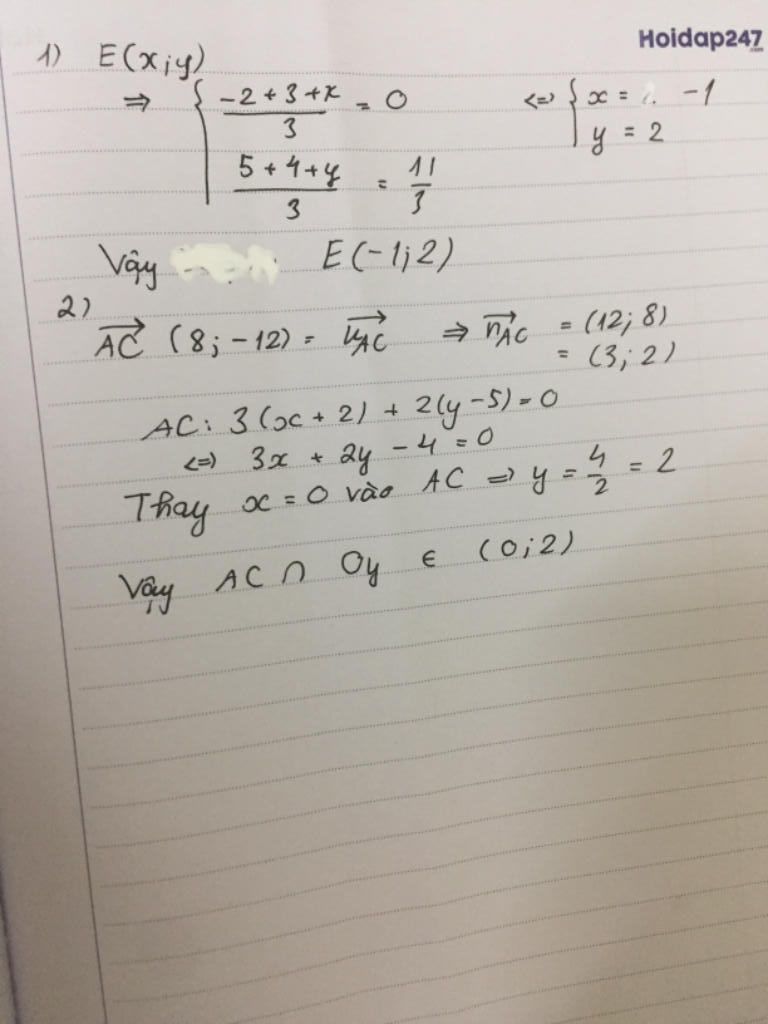 Hoidap247
.com
1) E(x;y)
⇒ { (-2+3+x)/3 = 0 ⇔ { x = -1
(5+4+y)/3 = 11/3 y = 2
Vậy E(-1;2)
2)
AC→ (8;-12) = u→AC ⇒ n→AC = (12;8)
= (3;2)
AC: 3(x+2) + 2(y-5) = 0
⇔ 3x + 2y - 4 = 0
Thay x = 0 vào AC ⇒ y = 4/2 = 2
Vậy AC ∩ Oy ∈ (0;2)